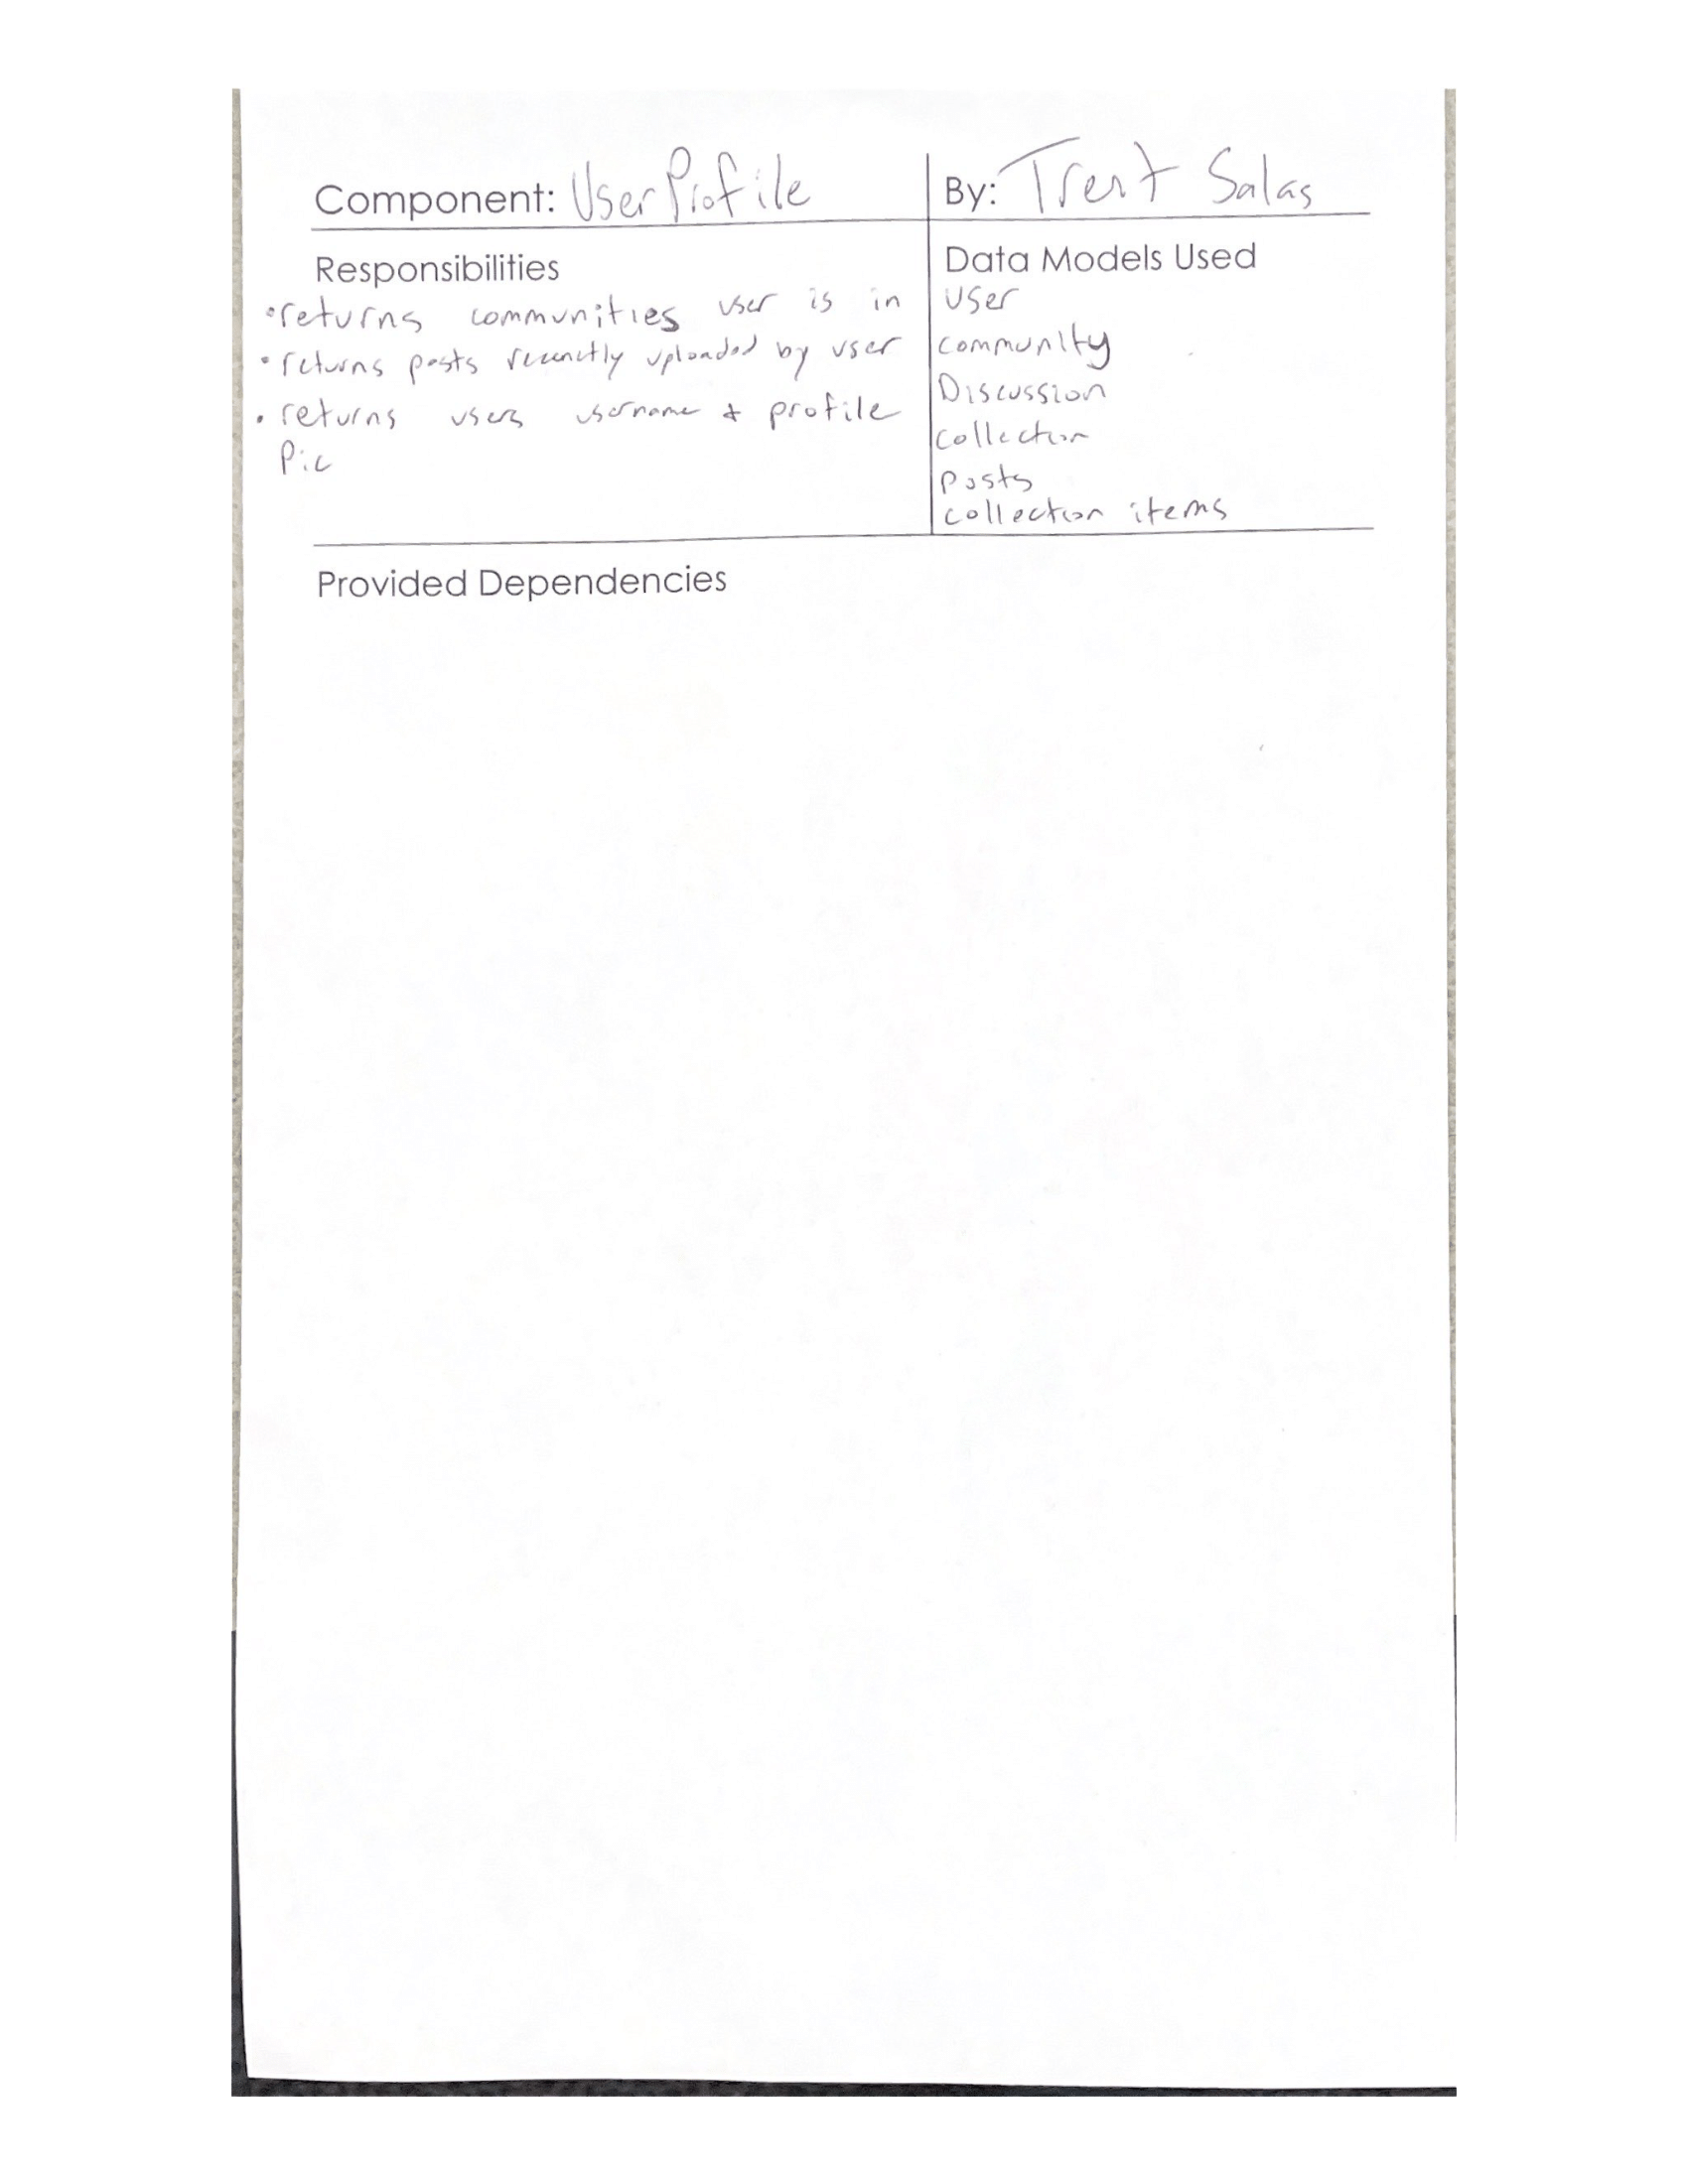 Component: UserProfile
By: Trent Salas
Responsibilities
•returns communities user is in
• returns posts recenctly uploaded by user
• returns users username & profile
Pic
Data Models Used
User
community
Discussion
collection
posts
collection items
Provided Dependencies